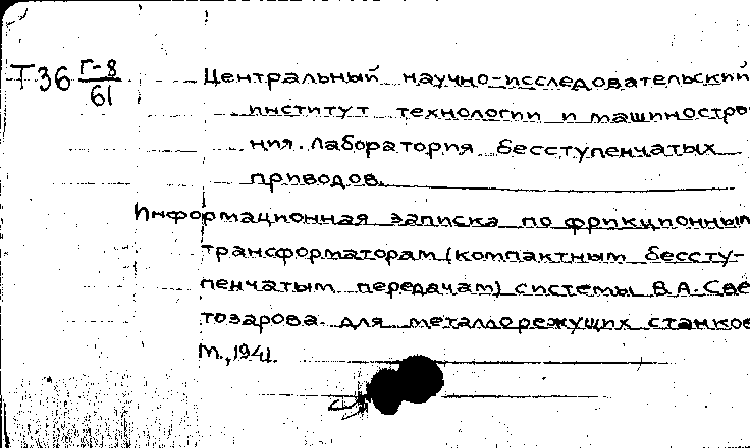 Т 36 Г-8/61
Центральный научно-исследовательский
институт технологии и машиностро
ния. Лаборатория бесступенчатых
приводов.
Информационная записка по фрикционным
трансформаторам (компактным бессту-
пенчатым передачам) системы В.А.Све
тозарова для металлорежущих станков
М., 1941.